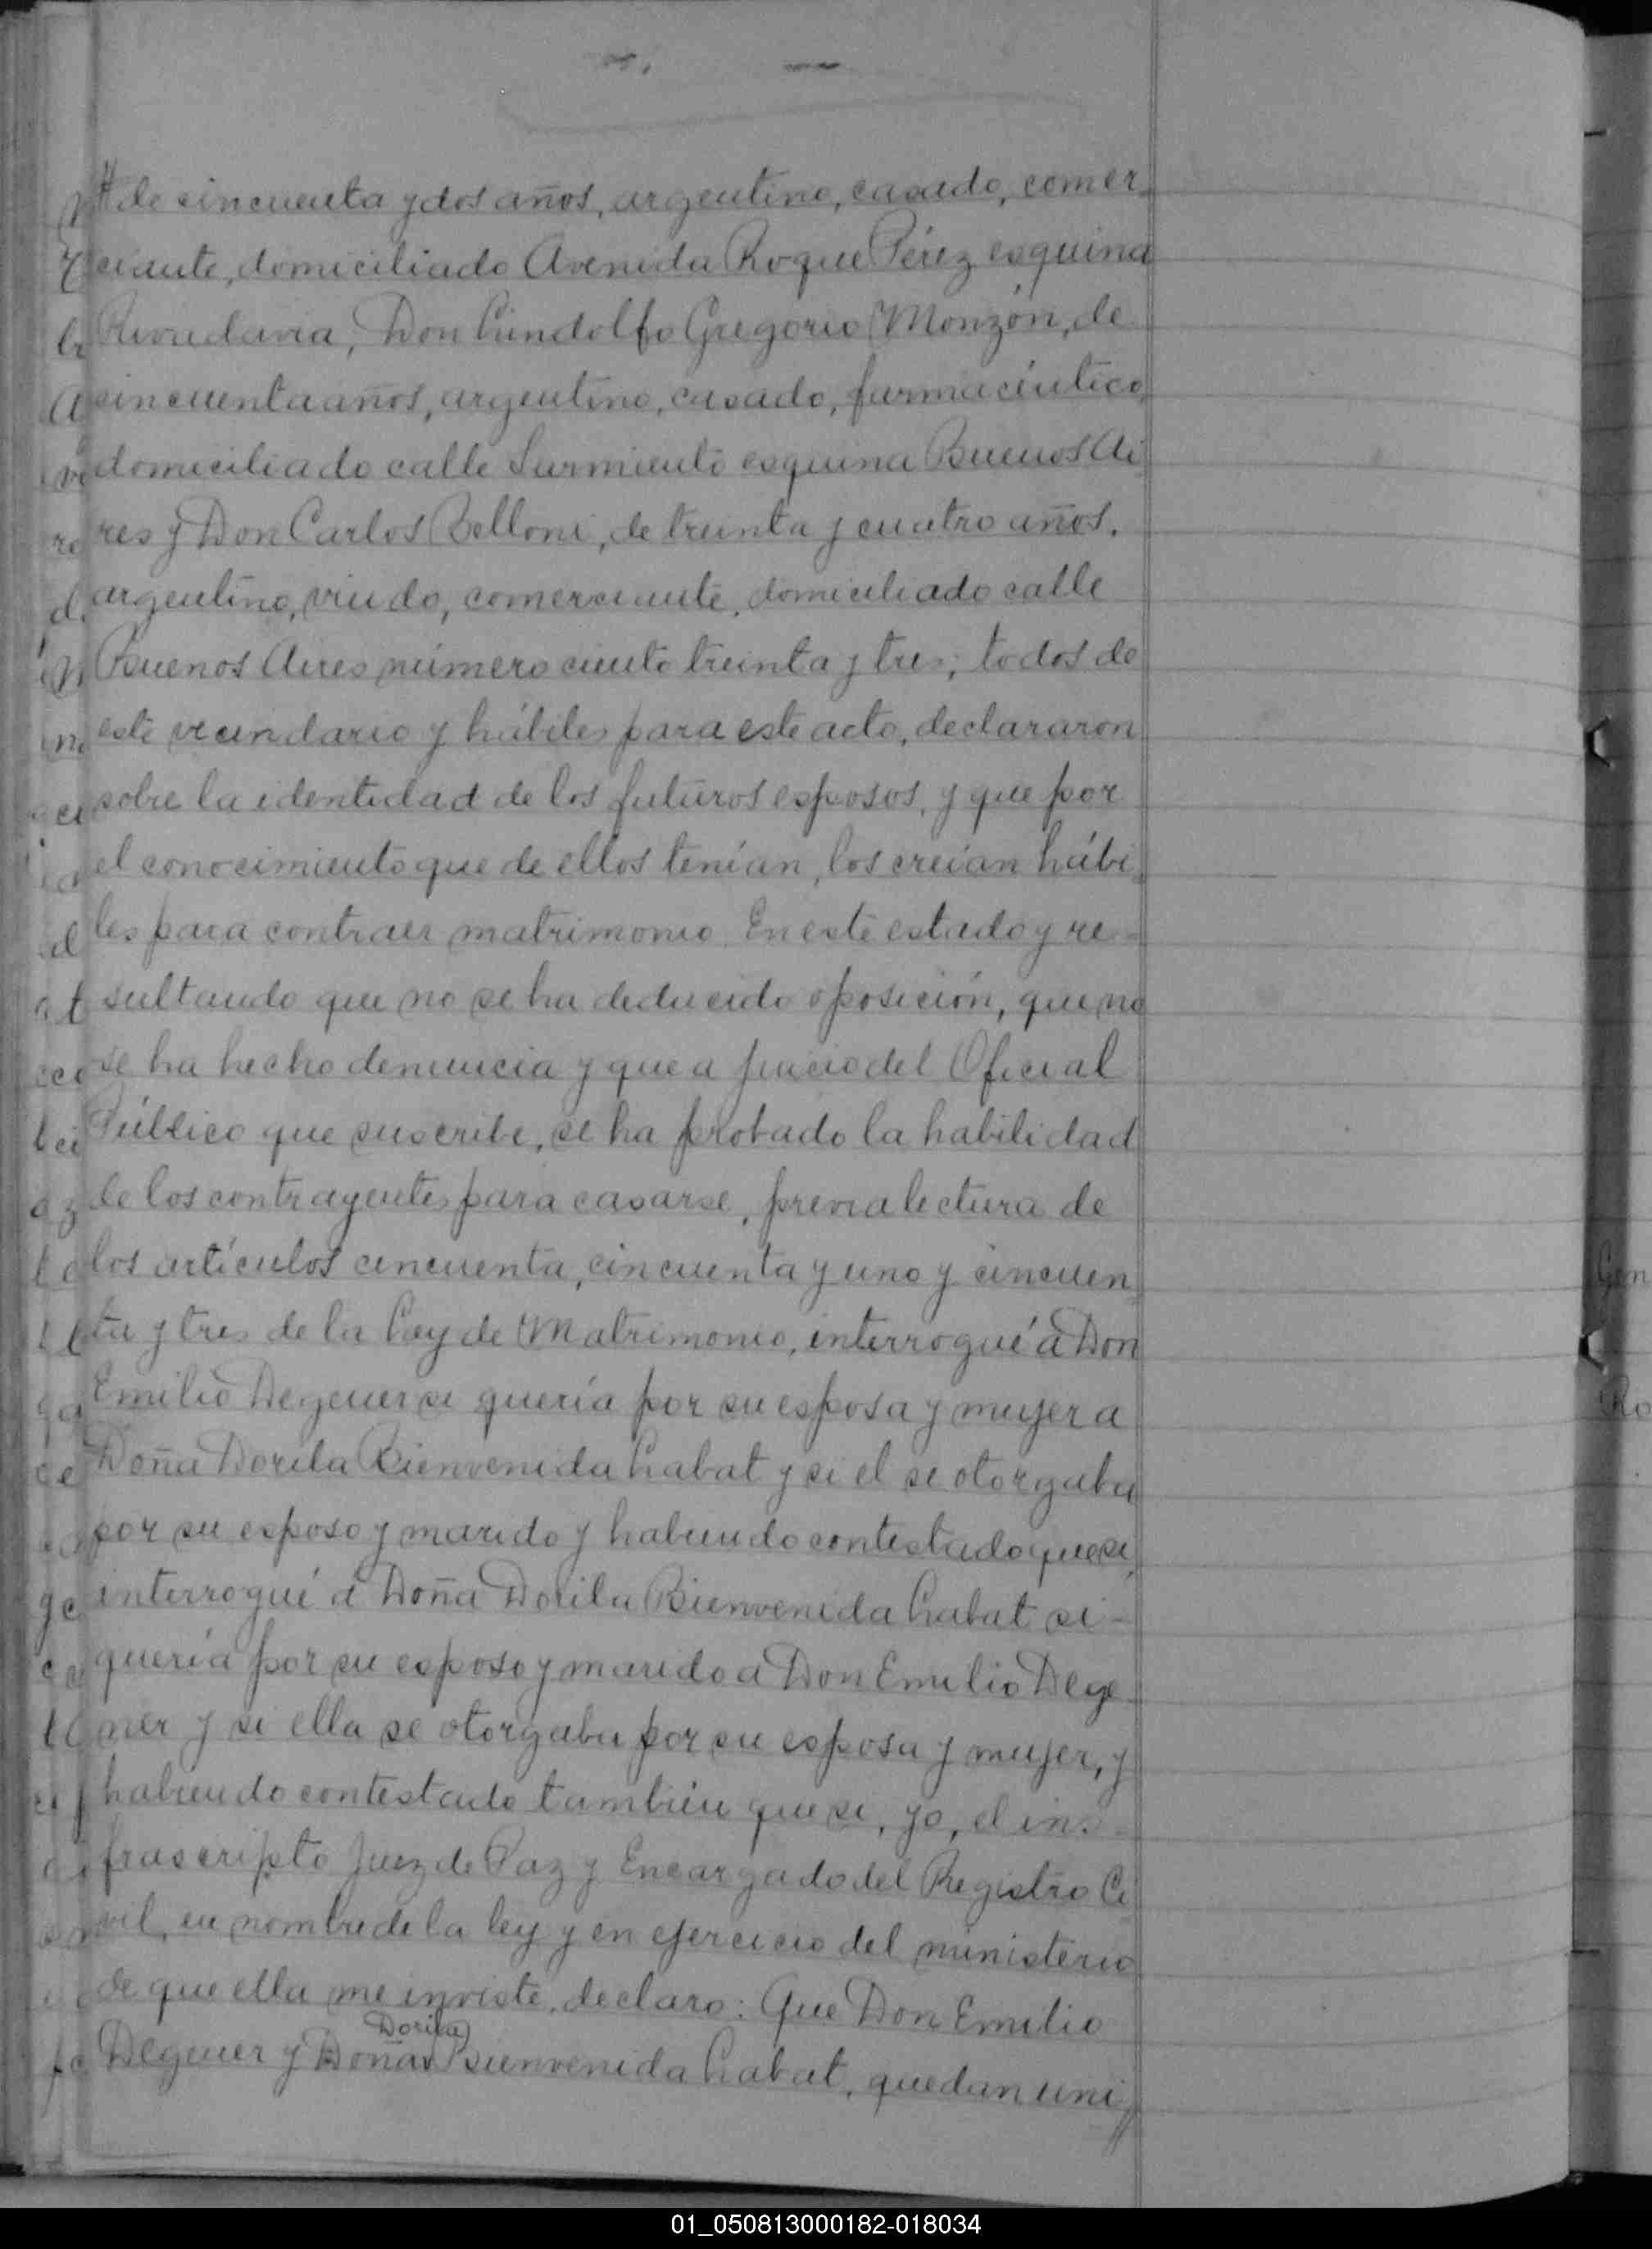 de cincuenta y dos años, argentino, casado, comer-
ciante, domiciliado Avenida Roque Pérez esquina
Rivadavia, Don Lindolfo Gregorio Monzón, de
cincuenta años, argentino, casado, farmacéutico,
domiciliado calle Sarmiento esquina Buenos Ai
res y Don Carlos Belloni, de treinta y cuatro años,
argentino, viudo, comerciante, domiciliado calle
Buenos Aires número ciento treinta y tres; todos de
este vecindario y hábiles para este acto, declararon
sobre la identidad de los futuros esposos, y que por
el conocimiento que de ellos tenían, los creían hábi
les para contraer matrimonio. En este estado y re-
sultando que no se ha deducido oposición, que no
se ha hecho denuncia y que a juicio del Oficial
Público que suscribe, se ha probado la habilidad
de los contrayentes para casarse, previa lectura de
los artículos cincuenta, cincuenta y uno y cincuen
ta y tres de la Ley de Matrimonio, interrogué á Don
Emilio Degener si quería por su esposa y mujer a
Doña Dorila Bienvenida Labat y si el se otorgaba
por su esposo y marido y habiendo contestado que si,
interrogué á Doña Dorila Bienvenida Labat si-
quería por su esposo y marido a Don Emilio Dege-
ner y si ella se otorgaba por su esposa y mujer, y
habiendo contestado también que si, yo, el in-
frascripto Juez de Paz y Encargado del Registro Ci
vil, en nombre de la ley y en ejercicio del ministerio
de que ella me inviste, declaro: Que Don Emilio
Dorila
Degener y Doña Bienvenida Labat, quedan uni
01_050813000182-018034